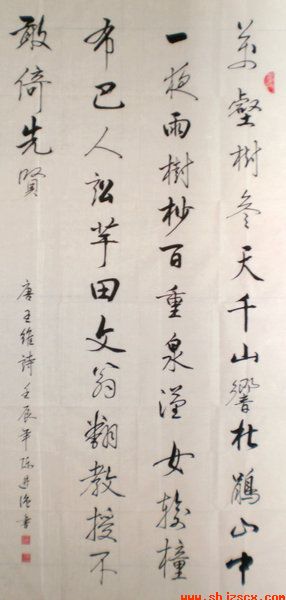 萬壑樹參天千山響杜鵑山中
一夜雨樹杪百重泉漢女輸橦
布巴人訟芋田文翁翻教授不
敢倚先賢
唐王維詩壬辰年陳進書
www.shizscx.com